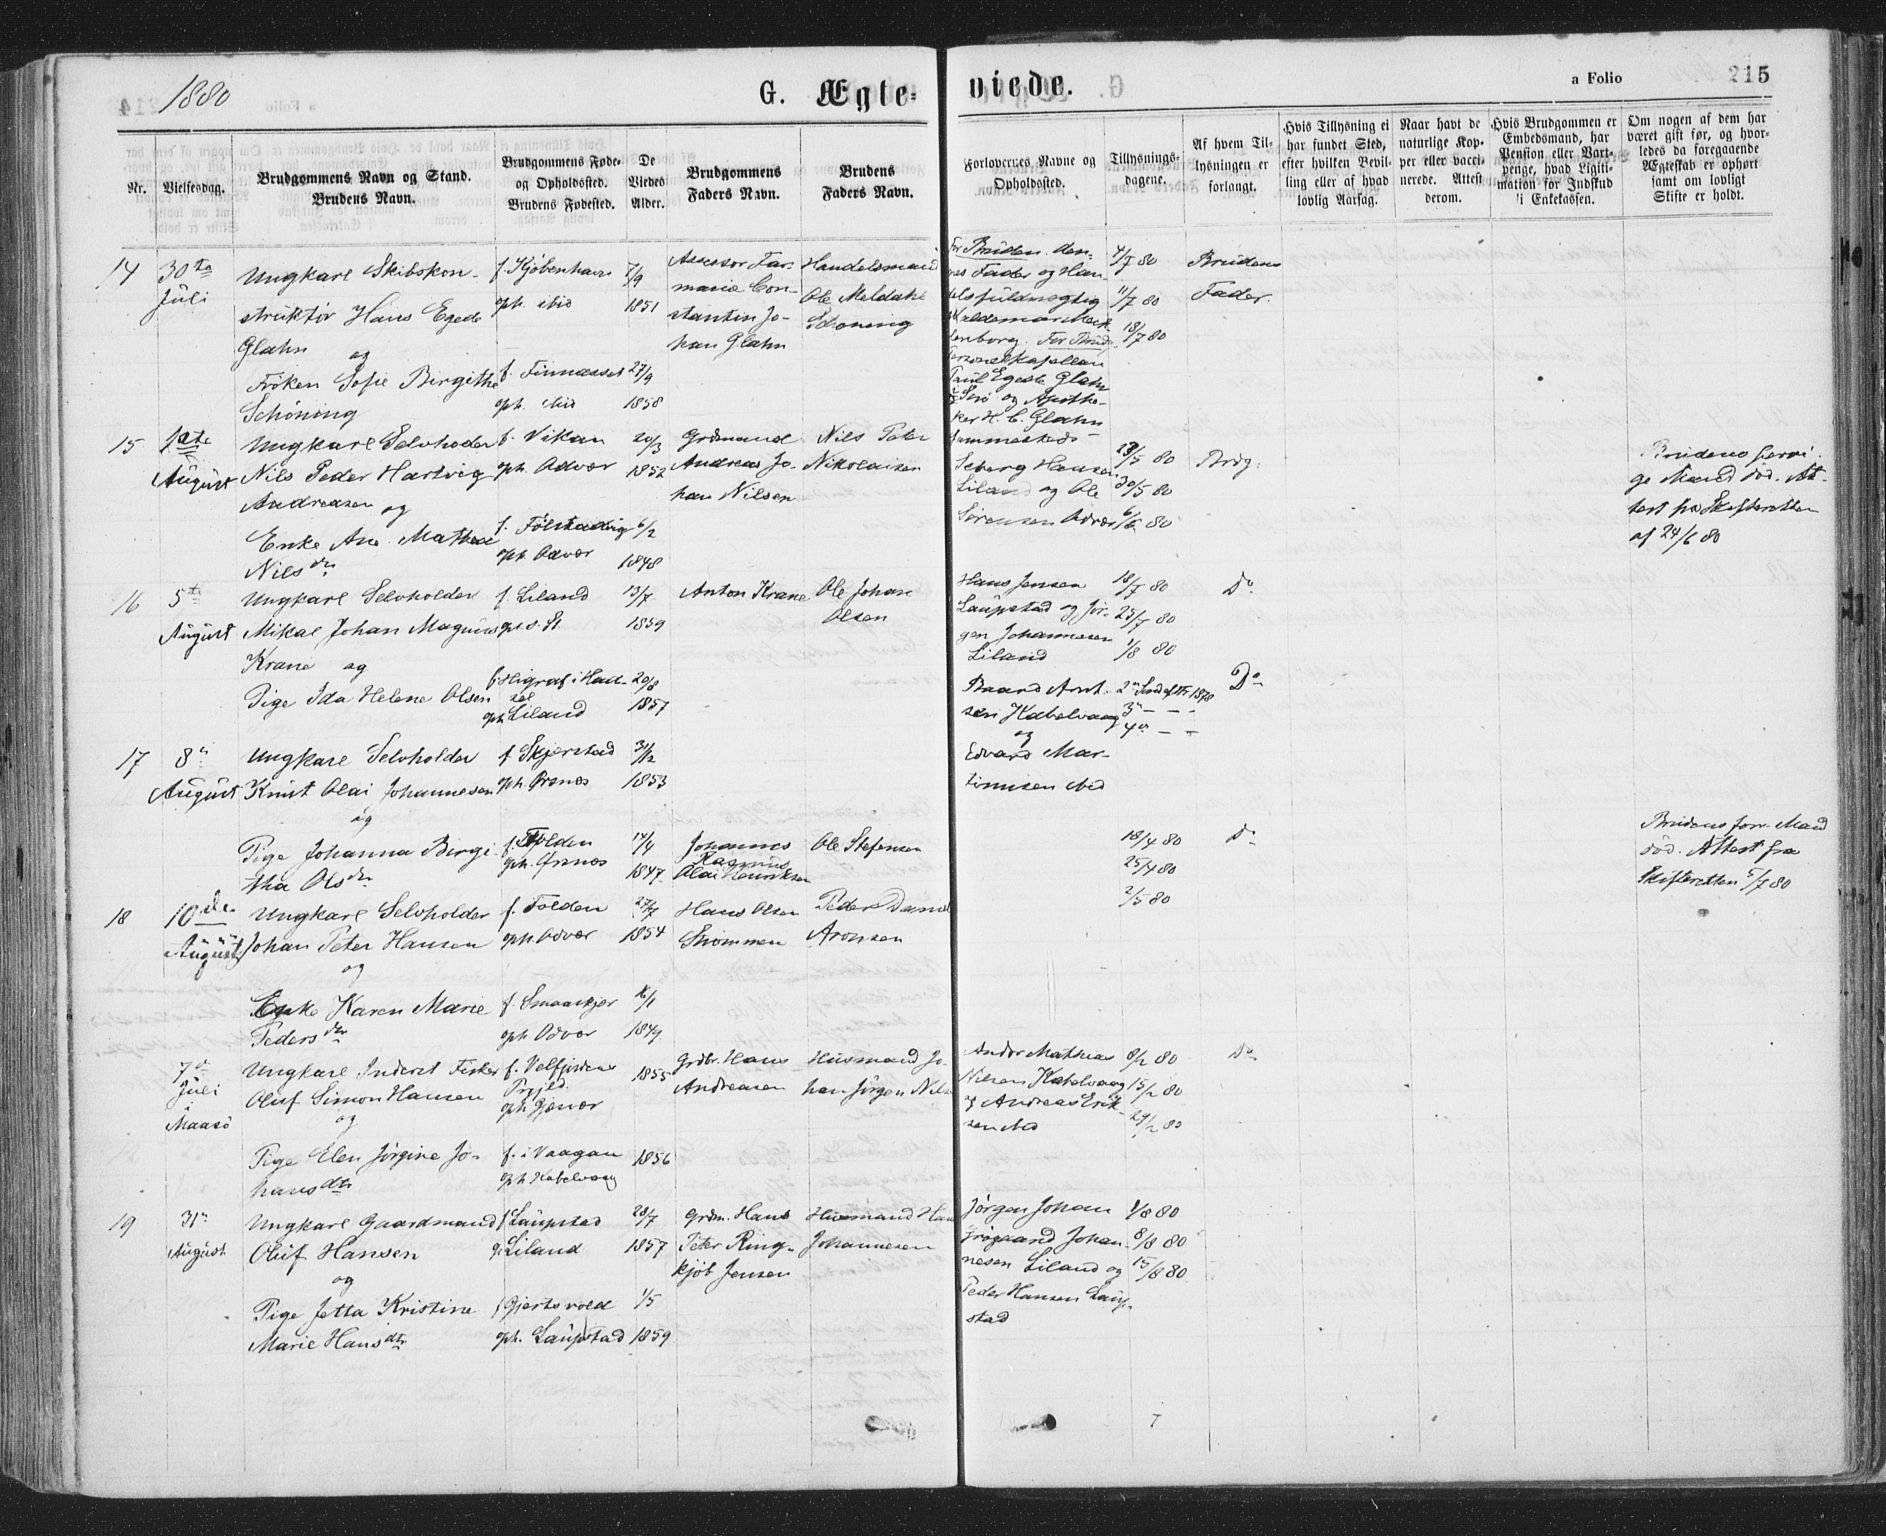 1880
G. Ægte-
viede.
a Folio
215
Nr.
Vielsesdag.
Brudgommens Navn og Stand.
Brudens Navn.
Brudgommens Føde-
og Opholdssted.
Brudens Fødested.
De
Viedes
Alder.
Brudgommens
Faders Navn.
Brudens
Faders Navn.
Forlovernes Navne og
Opholdssted.
Tillysnings-
dagene.
Af hvem Til-
lysningen er
forlangt.
Hvis Tillysning ei
har fundet Sted,
efter hvilken Bevil-
ling eller af hvad
lovlig Aarsag.
Naar havt de
naturlige Kop-
per eller vacci-
nerede. Attest
derom.
Hvis Brudgommen er
Embedsmand, har
Pension eller Vart-
penge, hvad Legiti-
mation for Indskud
i Enkekassen.
Om nogen af dem har
været gift før, og hvor-
ledes da foregaaende
Ægteskab er ophørt
samt om lovligt
Skifte er holdt.
14
30te
Juli
Ungkarl Skibskon-
struktør Hans Egede
Glahn
og
Frøken Sofie Birgithe
Schöning
f. Kjøbenhavn
oph. ibid
f. Finnæsset
oph. ibid
7/9
1851
27/9
1858
Assessor Far-
macie Con-
stantin Jo-
han Glahn
Handelsmand
Ole Meldahl
Schöning
For Bruden den-
nes Fader og Han-
delsfuldmægtig
Valdemar Meck-
lenborg. For Brudg.
Personelkapellan
Poul Egede Glahn
og Apothe-
ker H. C. Glahn
4/7 80
11/7 80
18/7 80
Brudens
Fader.
15
1ste
August
Ungkarl Selvholder
Nils Peder Hartvig
Andreasen og
Enke Ane Mathea
Nilsdtr
f. Vikan
oph. Odvær
f. Følstadvig
oph. Odvær
20/3
1852
6/2
1848
Grdmand
Andreas Jo-
han Nilsen
Nils Peter
Nikolaisen
Seberg Hansen
Liland og Ole
Sørensen Odvær
23/5 80
30/5 80
6/6 80
Brdg:
Brudens forri-
ge Mand død. At-
test fra Skifteretten
af 24/6 80
16
5te
August
Ungkarl Selvholder
Mikal Johan Magnus
Krane og
Pige Ida Helene Olsen
f. Liland
f. Higraf i Had-
sel
oph Liland
13/7
1859
20/8
1857
Anton Krane
Ole Johan
Olsen
Hans Jensen
Laupstad og Jør-
gen Johannesen
Liland
18/7 80
25/7 80
1/8 80
Do
17
8n
August
Ungkarl Selvholder
Knut Olai Johannesen
og
Pige Johanna Birgi-
tha Olsdtr
f. Skjerstad
oph. Ørsnæs
f. Folden
oph. Ørsnæs
31/12
1853
14/4
1847
Johannes
Rasmus
Olai Henriksen
Ole Stefensen
Baard Arnt-
sen Kabelvaag
og
Edvard Mar-
tinusen ibid
1878
Do
18
10de
August
Ungkarl Selvholder
Johan Peter Hansen
og
Enke Karen Marie
Pedersdtr
f. Folden
oph. Odvær
f. Smaaskjær
oph Odvær
27/7
1854
16/1
1849
Hans Olsen
Strømmen
Peder Daniel
Aronsen
18/4 80
25/4 80
2/5 80
Do
Brudens forr. Mand
død. Attest fra
Skifteretten 5/7 80
7de
Juli
i
Maasø
Ungkarl Inderst Fisker
Oluf Simon Hansen
og
Pige Elen Jørgine Jo-
hansdtr
f. Velfjorden
Prgjld.
oph Gjesvær
f. i Vaagan
oph Kabelvaag
1855
1856
Grdbr. Hans
Andreasen
Husmand Jo-
han Jørgen Nils
Andor Mathias
Nilsen Kabelvaag
og Andreas Erik-
sen ibid
8/2 80
15/2 80
29/2 80
Do
19
31n
August
Ungkarl Gaardmand
Oluf Hansen
og
Pige Jetta Kristine
Marie Hansdtr
f Laupstad
Liland
f Gjertsvold
oph. Laupstad
28/7
1857
1/5
1859
Grdm. Hans
Peter Ring-
kjøb Jensen
Husmand Hans
Johannesen
Jørgen Johan
Johan-
nesen Liland og
Peder Hansen Laup-
stad
1/8 80
8/8 80
15/8 80